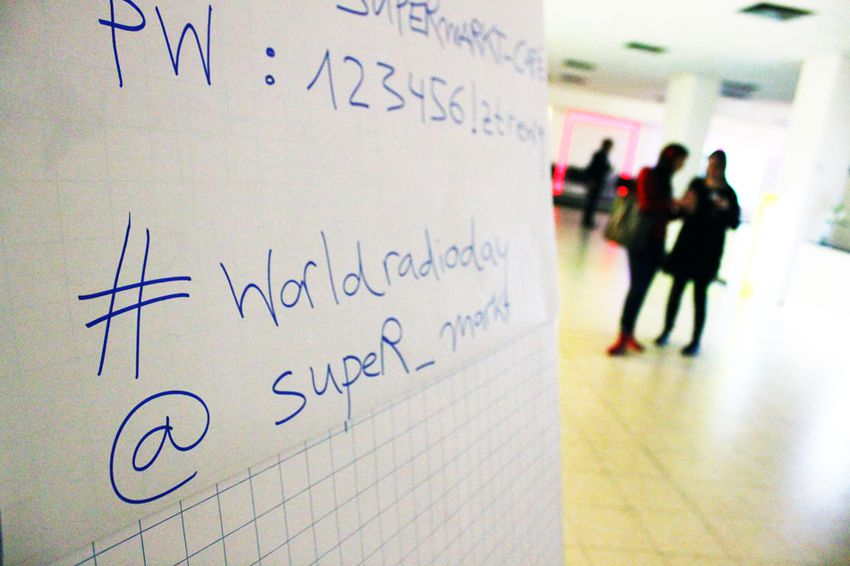 SUPERMARKT-CAFÉ
PW : 123456!ztren
#Worldradioday
@supeR_markt